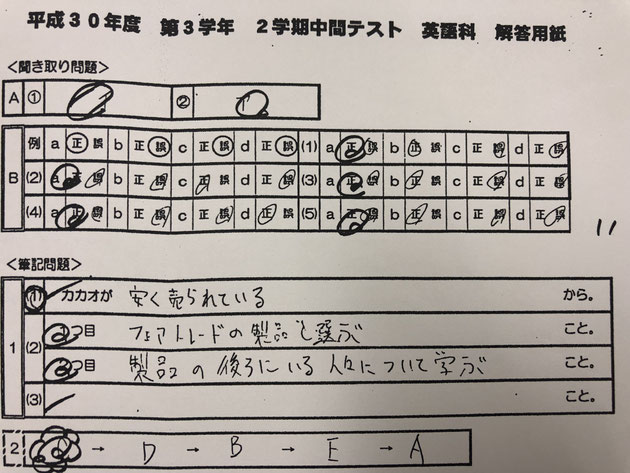 平成30年度 第3学年 2学期中間テスト 英語科 解答用紙
<聞き取り問題>
A ① ②
B 例 a 正 誤 b 正 誤 c 正 誤 d 正 誤 (1) a 正 誤 b 正 誤 c 正 誤 d 正 誤
(2) a 正 誤 b 正 誤 c 正 誤 d 正 誤 (3) a 正 誤 b 正 誤 c 正 誤 d 正 誤
(4) a 正 誤 b 正 誤 c 正 誤 d 正 誤 (5) a 正 誤 b 正 誤 c 正 誤 d 正 誤
11
<筆記問題>
1 (1) カカオが 安く売られている から。
(2) 1つ目 フェアトレードの製品を選ぶ こと。
2つ目 製品の後ろにいる人々について学ぶ こと。
(3) こと。
2 → D → B → E → A